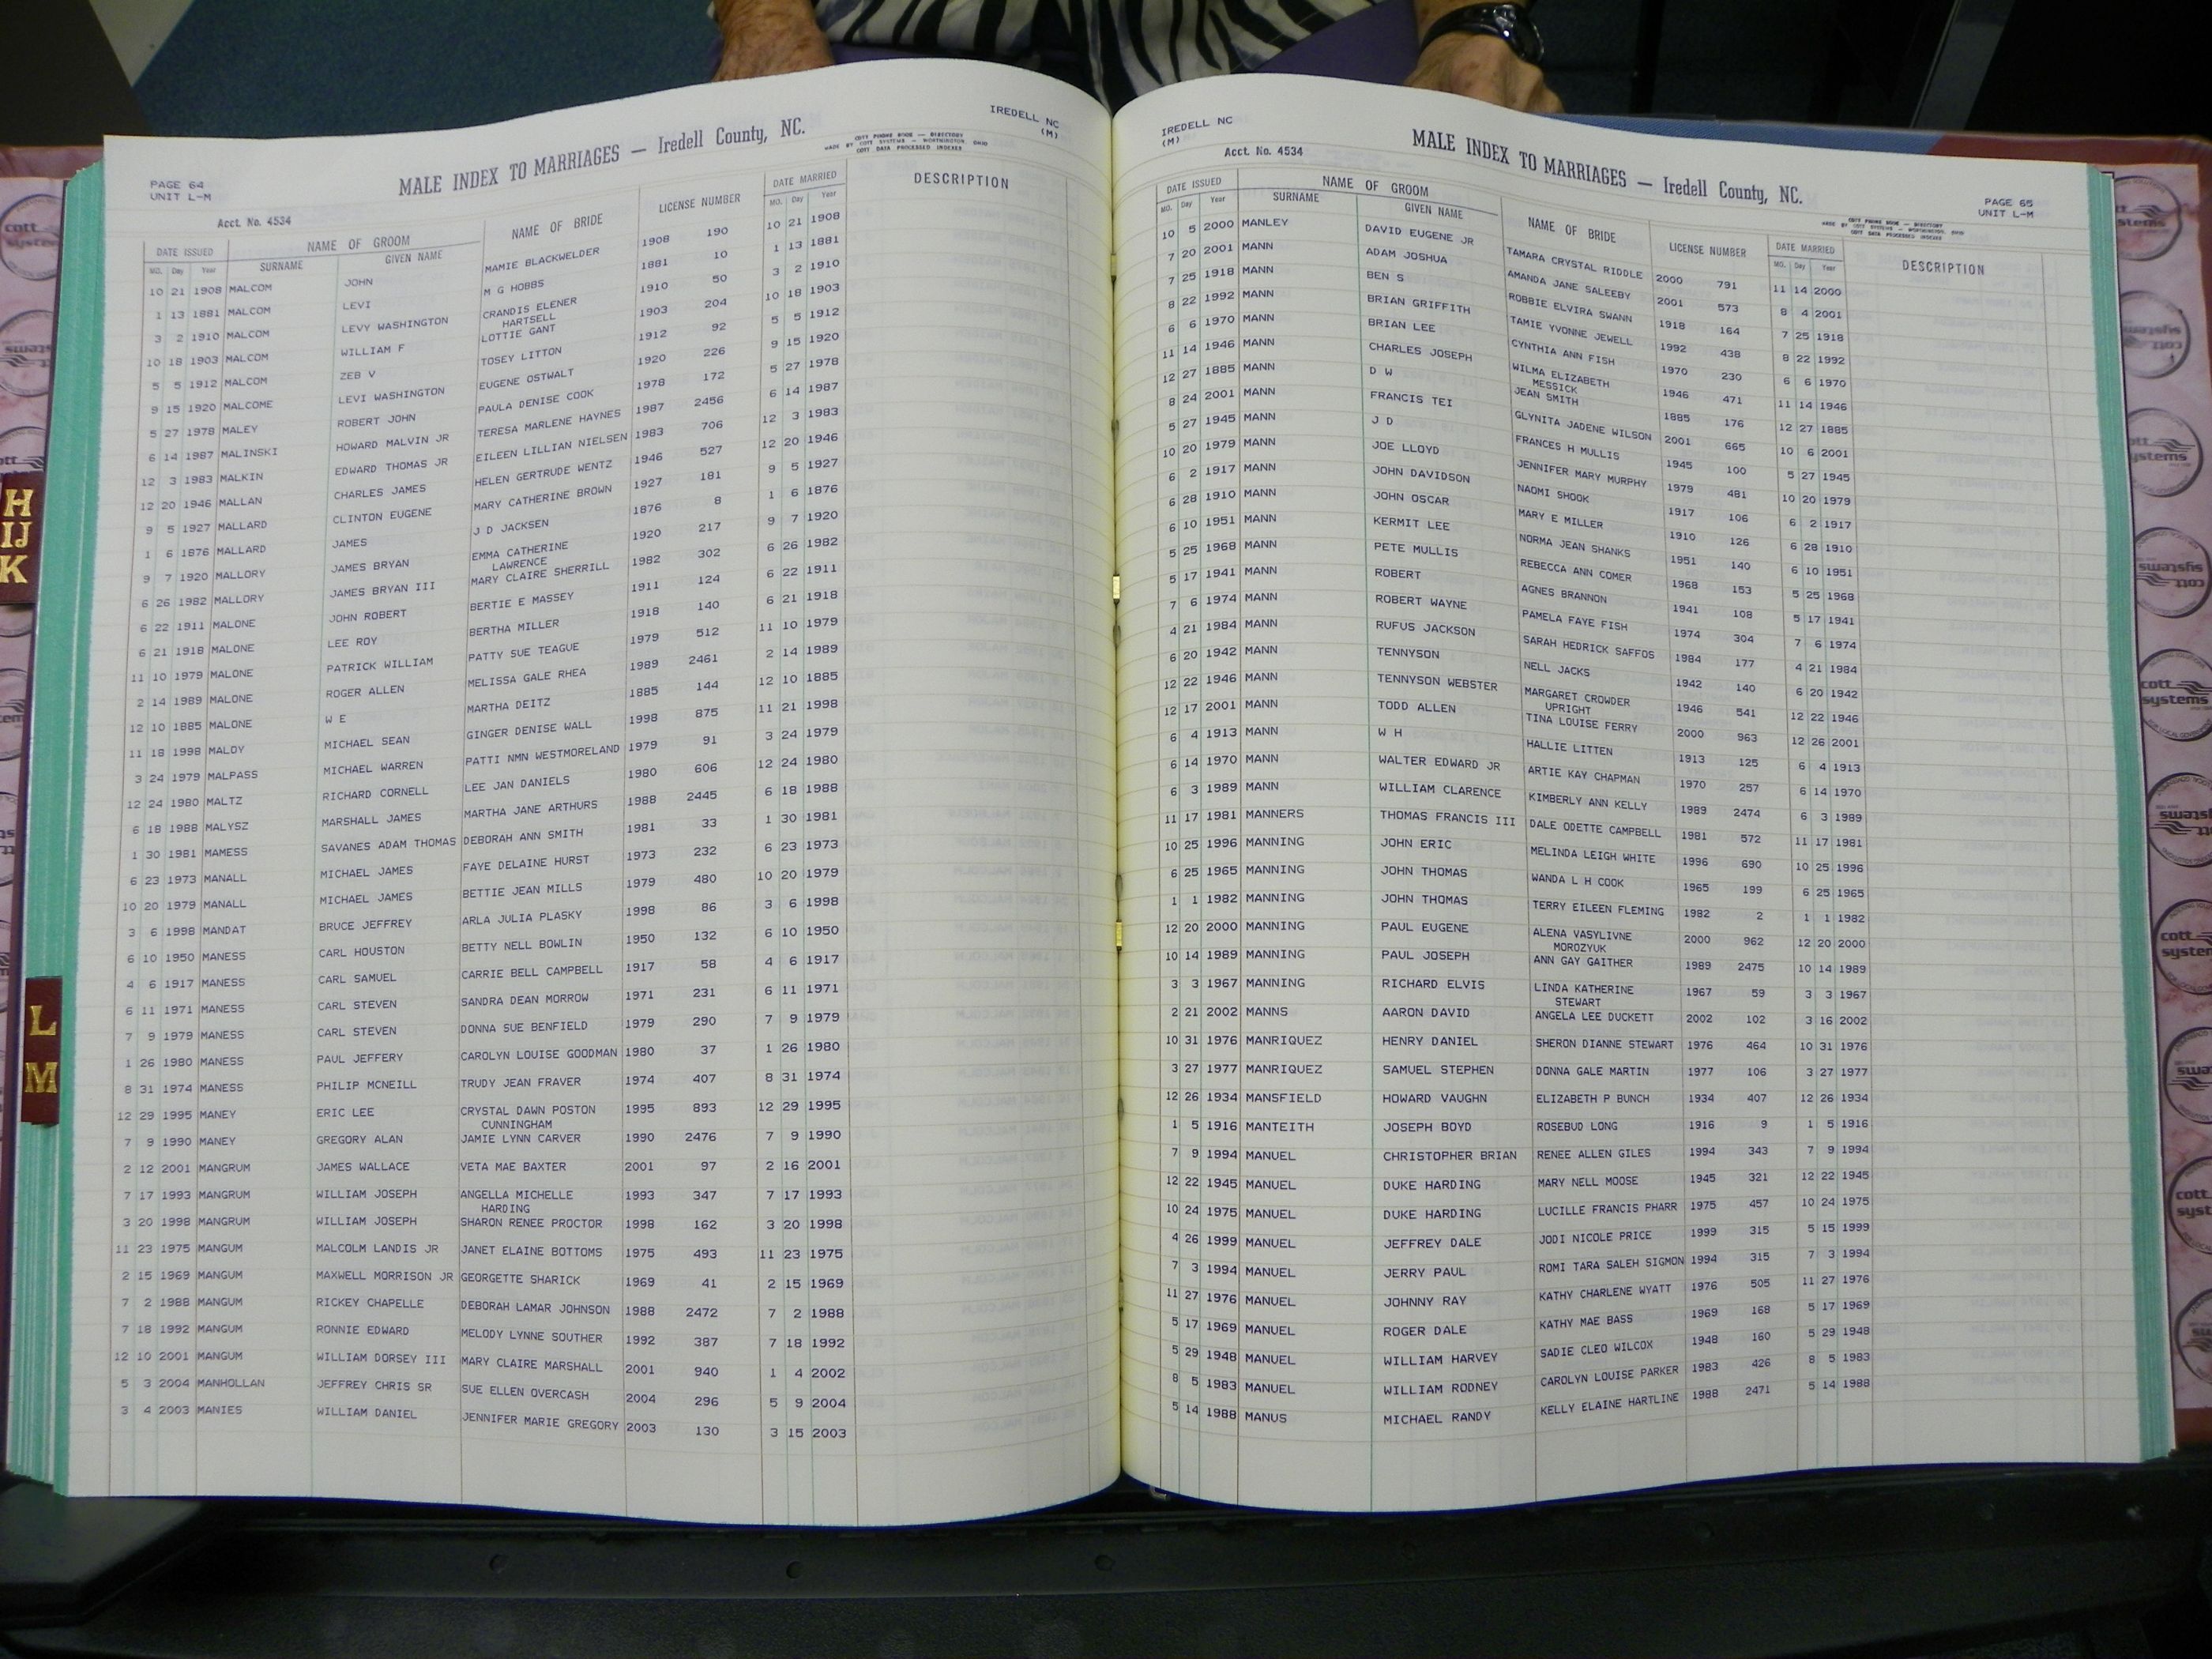 IREDELL NC
(M)
MALE INDEX TO MARRIAGES — Iredell County, NC.
COTT PHONE BOOK — DIRECTORY
MADE BY COTT SYSTEMS — WORTHINGTON OHIO
COTT DATA PROCESSED INDEXES
PAGE 64
UNIT L-M
Acct. No. 4534
DATE ISSUED NAME OF GROOM NAME OF BRIDE LICENSE NUMBER DATE MARRIED DESCRIPTION
MO. Day Year SURNAME GIVEN NAME MO. Day Year
10 21 1908 MALCOM JOHN MAMIE BLACKWELDER 1908 190 10 21 1908
1 13 1881 MALCOM LEVI M G HOBBS 1881 10 1 13 1881
3 2 1910 MALCOM LEVY WASHINGTON CRANDIS ELENER 1910 50 3 2 1910
HARTSELL
10 18 1903 MALCOM WILLIAM F LOTTIE GANT 1903 204 10 18 1903
5 5 1912 MALCOM ZEB V TOSEY LITTON 1912 92 5 5 1912
9 15 1920 MALCOME LEVI WASHINGTON EUGENE OSTWALT 1920 226 9 15 1920
5 27 1978 MALEY ROBERT JOHN PAULA DENISE COOK 1978 172 5 27 1978
6 14 1987 MALINSKI HOWARD MALVIN JR TERESA MARLENE HAYNES 1987 2456 6 14 1987
12 3 1983 MALKIN EDWARD THOMAS JR EILEEN LILLIAN NIELSEN 1983 706 12 3 1983
12 20 1946 MALLAN CHARLES JAMES HELEN GERTRUDE WENTZ 1946 527 12 20 1946
9 5 1927 MALLARD CLINTON EUGENE MARY CATHERINE BROWN 1927 181 9 5 1927
1 6 1876 MALLARD JAMES J D JACKSEN 1876 8 1 6 1876
9 7 1920 MALLORY JAMES BRYAN EMMA CATHERINE 1920 217 9 7 1920
LAWRENCE
6 26 1982 MALLORY JAMES BRYAN III MARY CLAIRE SHERRILL 1982 302 6 26 1982
6 22 1911 MALONE JOHN ROBERT BERTIE E MASSEY 1911 124 6 22 1911
6 21 1918 MALONE LEE ROY BERTHA MILLER 1918 140 6 21 1918
11 10 1979 MALONE PATRICK WILLIAM PATTY SUE TEAGUE 1979 512 11 10 1979
2 14 1989 MALONE ROGER ALLEN MELISSA GALE RHEA 1989 2461 2 14 1989
12 10 1885 MALONE W E MARTHA DEITZ 1885 144 12 10 1885
11 18 1998 MALOY MICHAEL SEAN GINGER DENISE WALL 1998 875 11 21 1998
3 24 1979 MALPASS MICHAEL WARREN PATTI NMN WESTMORELAND 1979 91 3 24 1979
12 24 1980 MALTZ RICHARD CORNELL LEE JAN DANIELS 1980 606 12 24 1980
6 18 1988 MALYSZ MARSHALL JAMES MARTHA JANE ARTHURS 1988 2445 6 18 1988
1 30 1981 MAMESS SAVANES ADAM THOMAS DEBORAH ANN SMITH 1981 33 1 30 1981
6 23 1973 MANALL MICHAEL JAMES FAYE DELAINE HURST 1973 232 6 23 1973
10 20 1979 MANALL MICHAEL JAMES BETTIE JEAN MILLS 1979 480 10 20 1979
3 6 1998 MANDAT BRUCE JEFFREY ARLA JULIA PLASKY 1998 86 3 6 1998
6 10 1950 MANESS CARL HOUSTON BETTY NELL BOWLIN 1950 132 6 10 1950
4 6 1917 MANESS CARL SAMUEL CARRIE BELL CAMPBELL 1917 58 4 6 1917
6 11 1971 MANESS CARL STEVEN SANDRA DEAN MORROW 1971 231 6 11 1971
7 9 1979 MANESS CARL STEVEN DONNA SUE BENFIELD 1979 290 7 9 1979
1 26 1980 MANESS PAUL JEFFERY CAROLYN LOUISE GOODMAN 1980 37 1 26 1980
8 31 1974 MANESS PHILIP MCNEILL TRUDY JEAN FRAVER 1974 407 8 31 1974
12 29 1995 MANEY ERIC LEE CRYSTAL DAWN POSTON 1995 893 12 29 1995
CUNNINGHAM
7 9 1990 MANEY GREGORY ALAN JAMIE LYNN CARVER 1990 2476 7 9 1990
2 12 2001 MANGRUM JAMES WALLACE VETA MAE BAXTER 2001 97 2 16 2001
7 17 1993 MANGRUM WILLIAM JOSEPH ANGELLA MICHELLE 1993 347 7 17 1993
HARDING
3 20 1998 MANGRUM WILLIAM JOSEPH SHARON RENEE PROCTOR 1998 162 3 20 1998
11 23 1975 MANGUM MALCOLM LANDIS JR JANET ELAINE BOTTOMS 1975 493 11 23 1975
2 15 1969 MANGUM MAXWELL MORRISON JR GEORGETTE SHARICK 1969 41 2 15 1969
7 2 1988 MANGUM RICKEY CHAPELLE DEBORAH LAMAR JOHNSON 1988 2472 7 2 1988
7 18 1992 MANGUM RONNIE EDWARD MELODY LYNNE SOUTHER 1992 387 7 18 1992
12 10 2001 MANGUM WILLIAM DORSEY III MARY CLAIRE MARSHALL 2001 940 1 4 2002
5 3 2004 MANHOLLAN JEFFREY CHRIS SR SUE ELLEN OVERCASH 2004 296 5 9 2004
3 4 2003 MANIES WILLIAM DANIEL JENNIFER MARIE GREGORY 2003 130 3 15 2003
IREDELL NC
(M)
Acct. No. 4534
MALE INDEX TO MARRIAGES — Iredell County, NC.
COTT PHONE BOOK — DIRECTORY
MADE BY COTT SYSTEMS — WORTHINGTON OHIO
COTT DATA PROCESSED INDEXES
PAGE 65
UNIT L-M
DATE ISSUED NAME OF GROOM NAME OF BRIDE LICENSE NUMBER DATE MARRIED DESCRIPTION
MO. Day Year SURNAME GIVEN NAME MO. Day Year
10 5 2000 MANLEY DAVID EUGENE JR TAMARA CRYSTAL RIDDLE 2000 791 11 14 2000
7 20 2001 MANN ADAM JOSHUA AMANDA JANE SALEEBY 2001 573 8 4 2001
7 25 1918 MANN BEN S ROBBIE ELVIRA SWANN 1918 164 7 25 1918
8 22 1992 MANN BRIAN GRIFFITH TAMIE YVONNE JEWELL 1992 438 8 22 1992
6 6 1970 MANN BRIAN LEE CYNTHIA ANN FISH 1970 230 6 6 1970
11 14 1946 MANN CHARLES JOSEPH WILMA ELIZABETH 1946 471 11 14 1946
MESSICK
12 27 1885 MANN D W JEAN SMITH 1885 176 12 27 1885
8 24 2001 MANN FRANCIS TEI GLYNITA JADENE WILSON 2001 665 10 6 2001
5 27 1945 MANN J D FRANCES H MULLIS 1945 100 5 27 1945
10 20 1979 MANN JOE LLOYD JENNIFER MARY MURPHY 1979 481 10 20 1979
6 2 1917 MANN JOHN DAVIDSON NAOMI SHOOK 1917 106 6 2 1917
6 28 1910 MANN JOHN OSCAR MARY E MILLER 1910 126 6 28 1910
6 10 1951 MANN KERMIT LEE NORMA JEAN SHANKS 1951 140 6 10 1951
5 25 1968 MANN PETE MULLIS REBECCA ANN COMER 1968 153 5 25 1968
5 17 1941 MANN ROBERT AGNES BRANNON 1941 108 5 17 1941
7 6 1974 MANN ROBERT WAYNE PAMELA FAYE FISH 1974 304 7 6 1974
4 21 1984 MANN RUFUS JACKSON SARAH HEDRICK SAFFOS 1984 177 4 21 1984
6 20 1942 MANN TENNYSON NELL JACKS 1942 140 6 20 1942
12 22 1946 MANN TENNYSON WEBSTER MARGARET CROWDER 1946 541 12 22 1946
UPRIGHT
12 17 2001 MANN TODD ALLEN TINA LOUISE FERRY 2000 963 12 26 2001
6 4 1913 MANN W H HALLIE LITTEN 1913 125 6 4 1913
6 14 1970 MANN WALTER EDWARD JR ARTIE KAY CHAPMAN 1970 257 6 14 1970
6 3 1989 MANN WILLIAM CLARENCE KIMBERLY ANN KELLY 1989 2474 6 3 1989
11 17 1981 MANNERS THOMAS FRANCIS III DALE ODETTE CAMPBELL 1981 572 11 17 1981
10 25 1996 MANNING JOHN ERIC MELINDA LEIGH WHITE 1996 690 10 25 1996
6 25 1965 MANNING JOHN THOMAS WANDA L H COOK 1965 199 6 25 1965
1 1 1982 MANNING JOHN THOMAS TERRY EILEEN FLEMING 1982 2 1 1 1982
12 20 2000 MANNING PAUL EUGENE ALENA VASYLIVNE 2000 962 12 20 2000
MOROZYUK
10 14 1989 MANNING PAUL JOSEPH ANN GAY GAITHER 1989 2475 10 14 1989
3 3 1967 MANNING RICHARD ELVIS LINDA KATHERINE 1967 59 3 3 1967
STEWART
2 21 2002 MANNS AARON DAVID ANGELA LEE DUCKETT 2002 102 3 16 2002
10 31 1976 MANRIQUEZ HENRY DANIEL SHERON DIANNE STEWART 1976 464 10 31 1976
3 27 1977 MANRIQUEZ SAMUEL STEPHEN DONNA GALE MARTIN 1977 106 3 27 1977
12 26 1934 MANSFIELD HOWARD VAUGHN ELIZABETH P BUNCH 1934 407 12 26 1934
1 5 1916 MANTEITH JOSEPH BOYD ROSEBUD LONG 1916 9 1 5 1916
7 9 1994 MANUEL CHRISTOPHER BRIAN RENEE ALLEN GILES 1994 343 7 9 1994
12 22 1945 MANUEL DUKE HARDING MARY NELL MOOSE 1945 321 12 22 1945
10 24 1975 MANUEL DUKE HARDING LUCILLE FRANCIS PHARR 1975 457 10 24 1975
4 26 1999 MANUEL JEFFREY DALE JODI NICOLE PRICE 1999 315 5 15 1999
7 3 1994 MANUEL JERRY PAUL ROMI TARA SALEH SIGMON 1994 315 7 3 1994
11 27 1976 MANUEL JOHNNY RAY KATHY CHARLENE WYATT 1976 505 11 27 1976
5 17 1969 MANUEL ROGER DALE KATHY MAE BASS 1969 168 5 17 1969
5 29 1948 MANUEL WILLIAM HARVEY SADIE CLEO WILCOX 1948 160 5 29 1948
8 5 1983 MANUEL WILLIAM RODNEY CAROLYN LOUISE PARKER 1983 426 8 5 1983
5 14 1988 MANUS MICHAEL RANDY KELLY ELAINE HARTLINE 1988 2471 5 14 1988
H
IJ
K
L
M
cott
systems